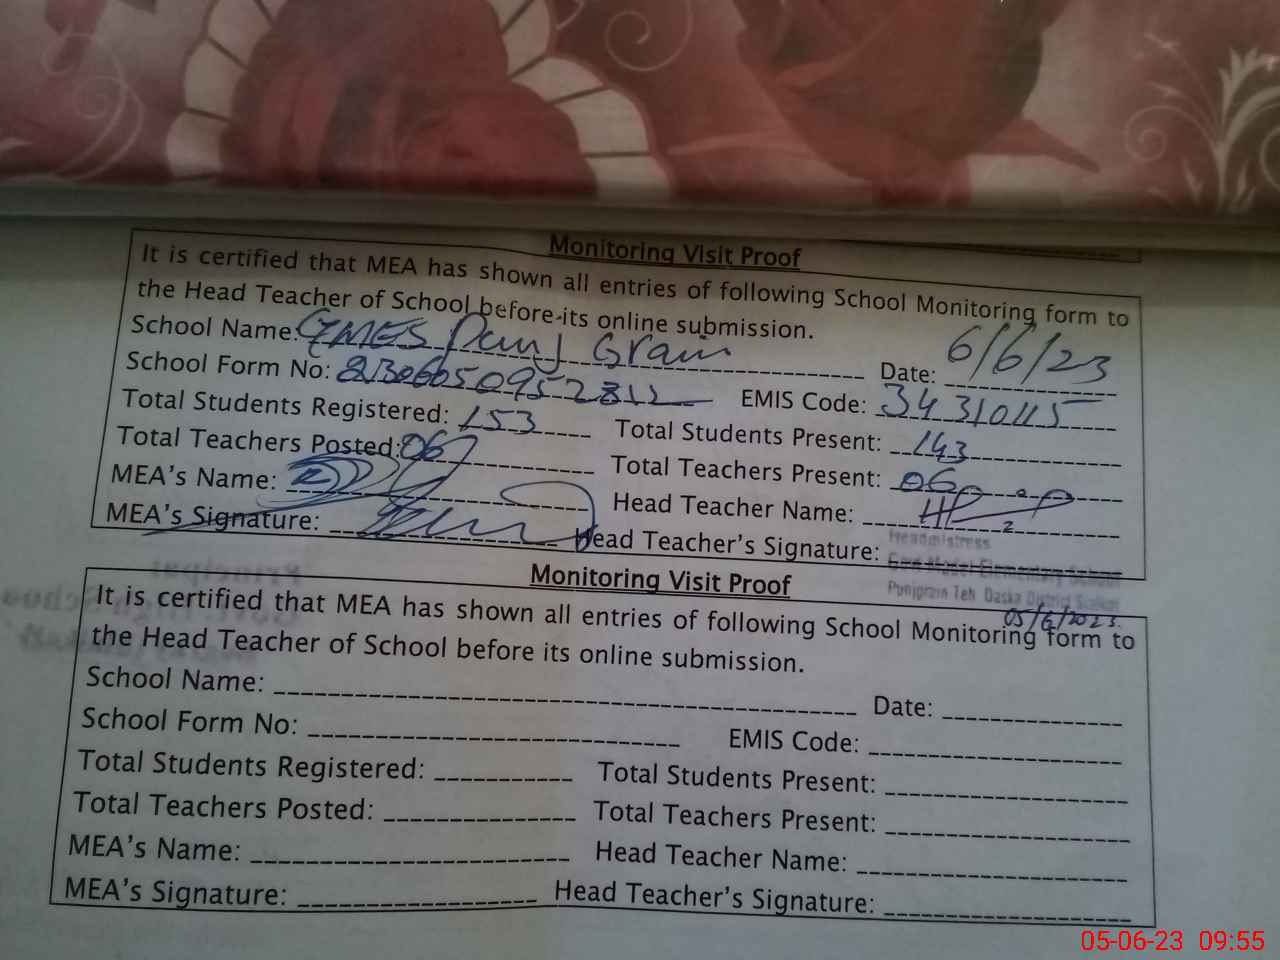 Monitoring Visit Proof
It is certified that MEA has shown all entries of following School Monitoring form to
the Head Teacher of School before its online submission.
School Name: GMES Panj Grain Date: 6/6/23
School Form No: EMIS Code: 34310115
Total Students Registered: 153 Total Students Present: 143
Total Teachers Posted: 06 Total Teachers Present: 06
MEA's Name: Head Teacher Name:
MEA's Signature: Head Teacher's Signature:
Headmistress
Govt Model Elementary School
Punjgrain Teh Daska District Sialkot
05/6/2023
Principal
Monitoring Visit Proof
It is certified that MEA has shown all entries of following School Monitoring form to
the Head Teacher of School before its online submission.
School Name: Date:
School Form No: EMIS Code:
Total Students Registered: Total Students Present:
Total Teachers Posted: Total Teachers Present:
MEA's Name: Head Teacher Name:
MEA's Signature: Head Teacher's Signature:
05-06-23 09:55